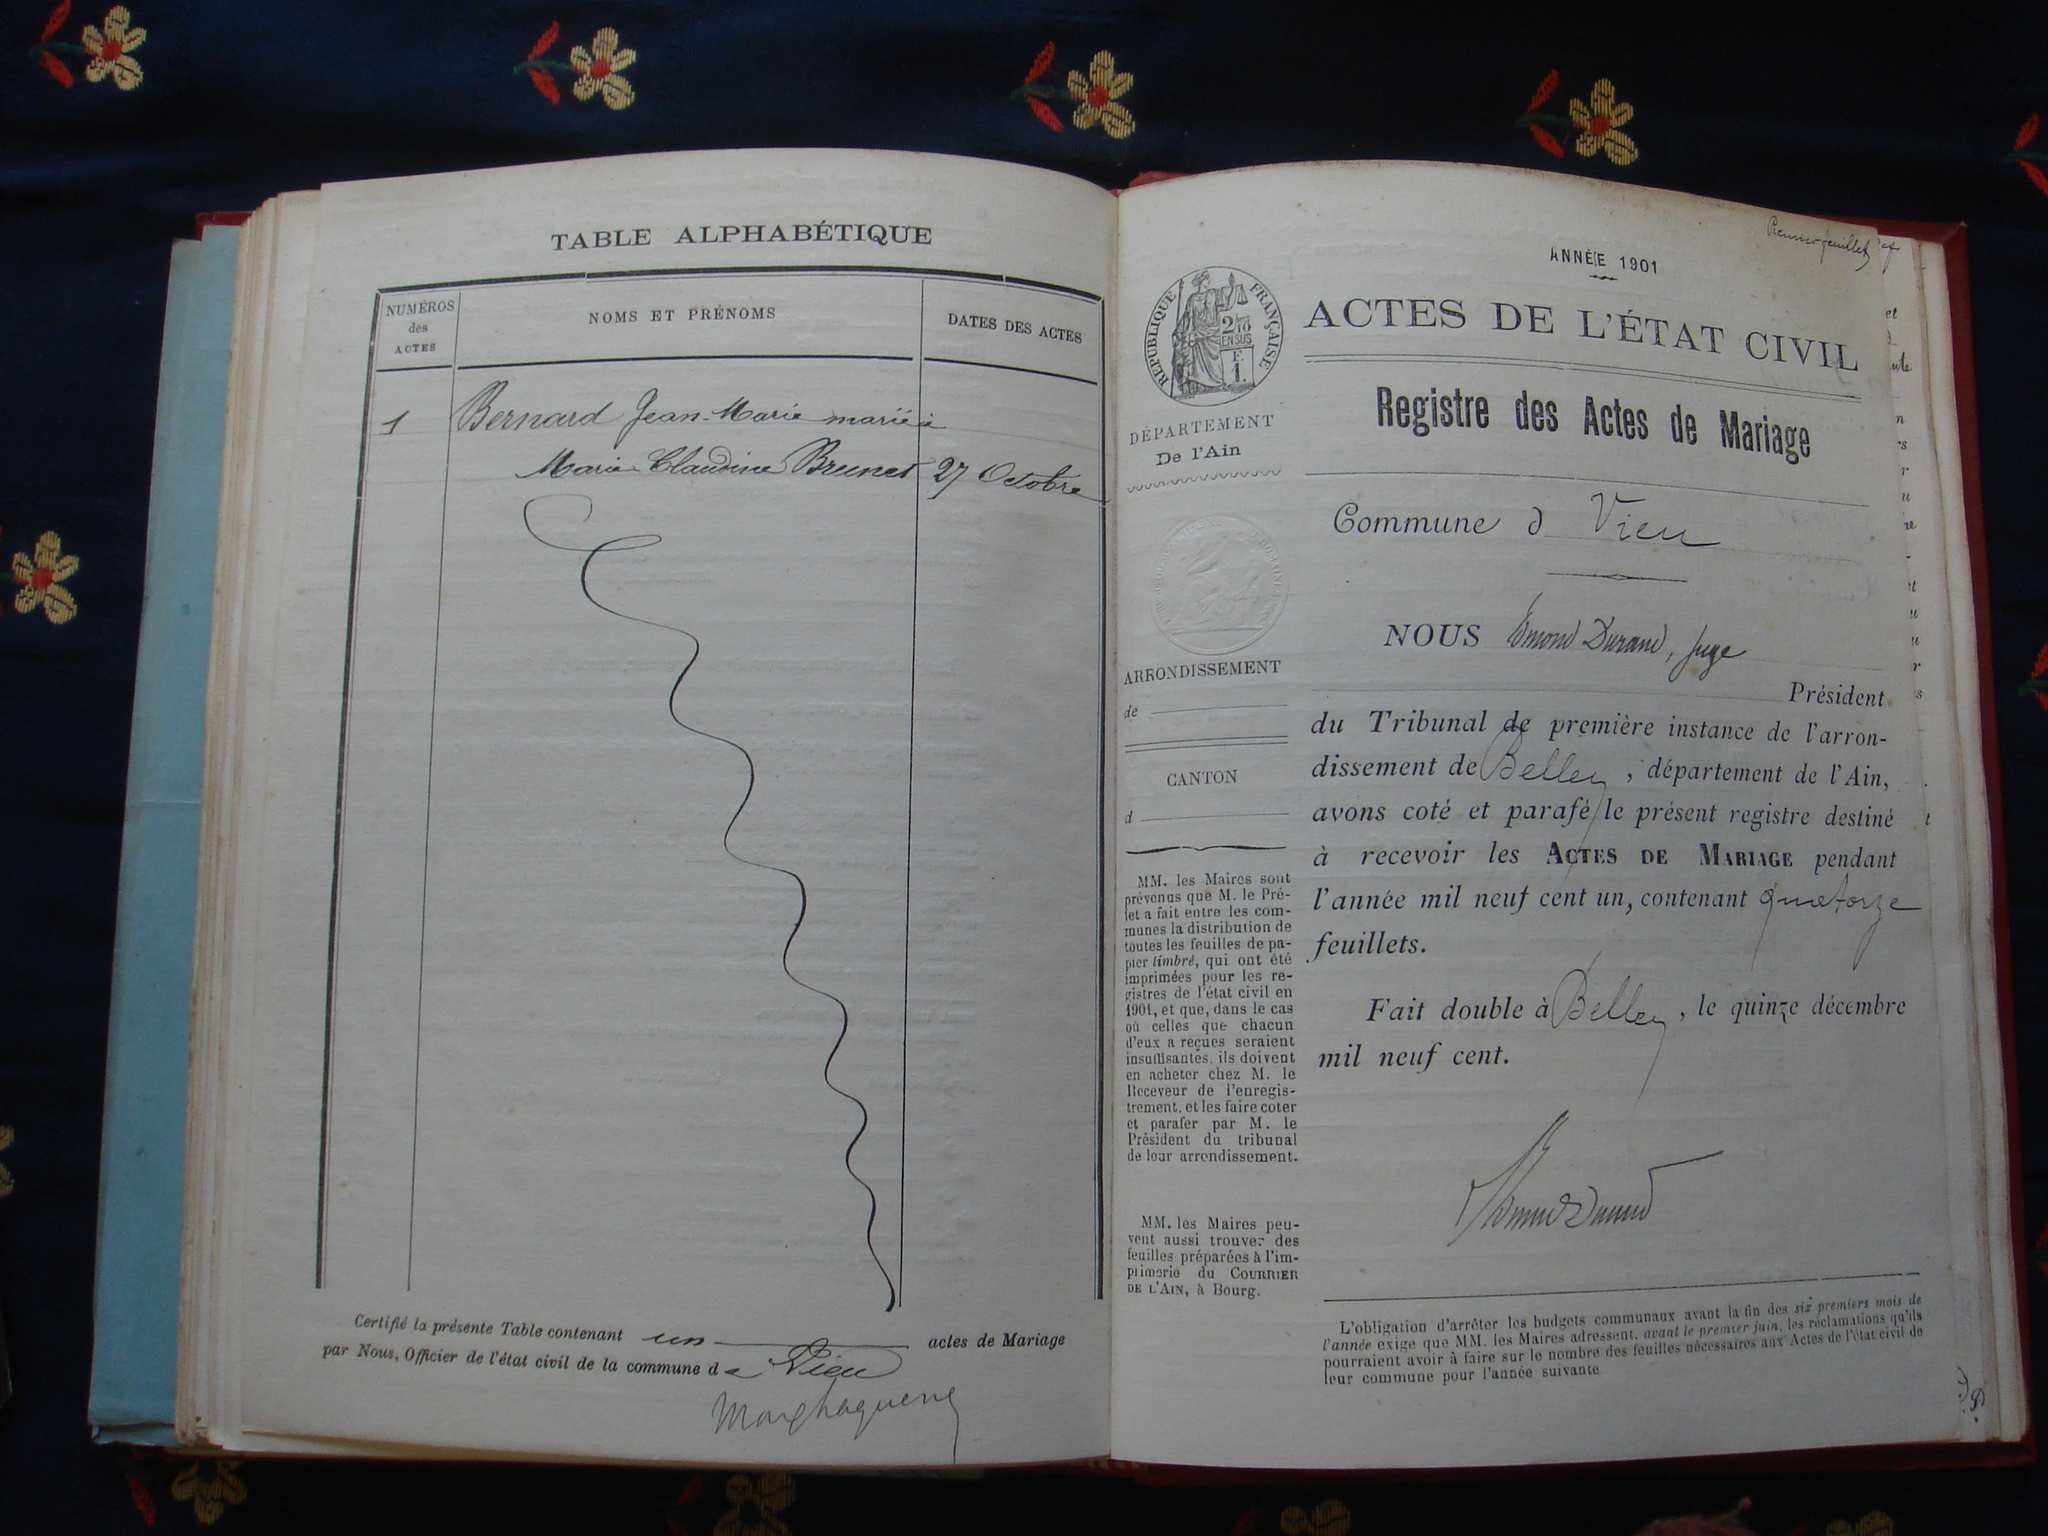 TABLE ALPHABÉTIQUE
NUMÉROS
des
ACTES
NOMS ET PRÉNOMS
DATES DES ACTES
1
Bernard Jean-Marie marié à
Marie Claudine Brunet 27 Octobre
Certifié la présente Table contenant un actes de Mariage
par Nous, Officier de l'état civil de la commune de Vieu
Premier feuillet
ANNÉE 1901
ACTES DE L'ÉTAT CIVIL
Registre des Actes de Mariage
RÉPUBLIQUE FRANÇAISE
2/10
EN SUS
F.
1.
DÉPARTEMENT
De l'Ain
Commune d Vieu
NOUS Edmond Durand, Juge
Président
du Tribunal de première instance de l'arron-
dissement de Belley, département de l'Ain,
avons coté et parafé le présent registre destiné
à recevoir les ACTES DE MARIAGE pendant
l'année mil neuf cent un, contenant quatorze
feuillets.
Fait double à Belley, le quinze décembre
mil neuf cent.
Edmond Durand
ARRONDISSEMENT
de
CANTON
d
MM. les Maires sont
prévenus que M. le Pré-
fet a fait entre les com-
munes la distribution de
toutes les feuilles de pa-
pier timbré, qui ont été
imprimées pour les re-
gistres de l'état civil en
1901, et que, dans le cas
où celles que chacun
d'eux a reçues seraient
insuffisantes, ils doivent
en acheter chez M. le
Receveur de l'enregis-
trement, et les faire coter
et parafer par M. le
Président du tribunal
de leur arrondissement.
MM. les Maires peu-
vent aussi trouver des
feuilles préparées à l'im-
primerie du COURRIER
DE L'AIN, à Bourg.
L'obligation d'arrêter les budgets communaux avant la fin des six premiers mois de
l'année exige que MM. les Maires adressent, avant le premier juin, les réclamations qu'ils
pourraient avoir à faire sur le nombre des feuilles nécessaires aux Actes de l'état civil de
leur commune pour l'année suivante